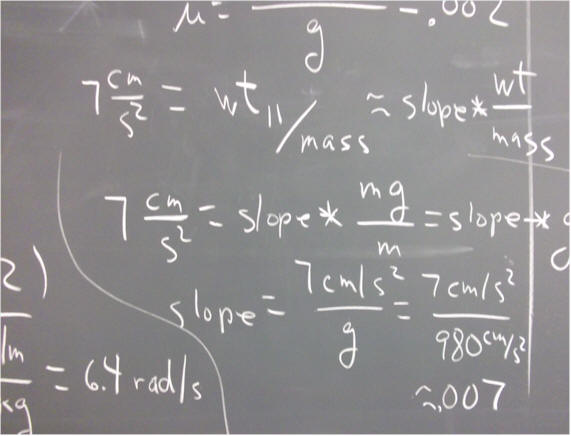 μ = / g = .002
7 cm/s² = wt ıı / mass ≈ slope * wt / mass
7 cm/s² = slope * mg / m = slope * g
slope = 7 cm/s² / g = 7 cm/s² / 980 cm/s²
≈ .007
2)
/m
kg = 6.4 rad/s